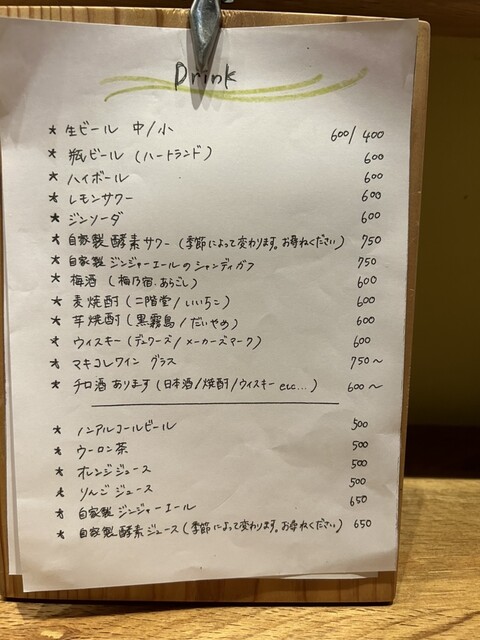 Drink
★ 生ビール 中/小 600/400
★ 瓶ビール (ハートランド) 600
★ ハイボール 600
★ レモンサワー 600
★ ジンソーダ 600
★ 自家製酵素サワー (季節によって変わります。お尋ねください) 750
★ 自家製ジンジャーエールのシャンディガフ 750
★ 梅酒 (梅乃宿.あらごし) 600
★ 麦焼酎 (二階堂/いいちこ) 600
★ 芋焼酎 (黒霧島/だいやめ) 600
★ ウィスキー (デュワーズ/メーカーズマーク) 600
★ マキコレワイン グラス 750〜
★ チロ酒あります (日本酒/焼酎/ウィスキー etc...) 600〜
★ ノンアルコールビール 500
★ ウーロン茶 500
★ オレンジジュース 500
★ りんごジュース 500
★ 自家製ジンジャーエール 650
★ 自家製酵素ジュース (季節によって変わります。お尋ねください) 650